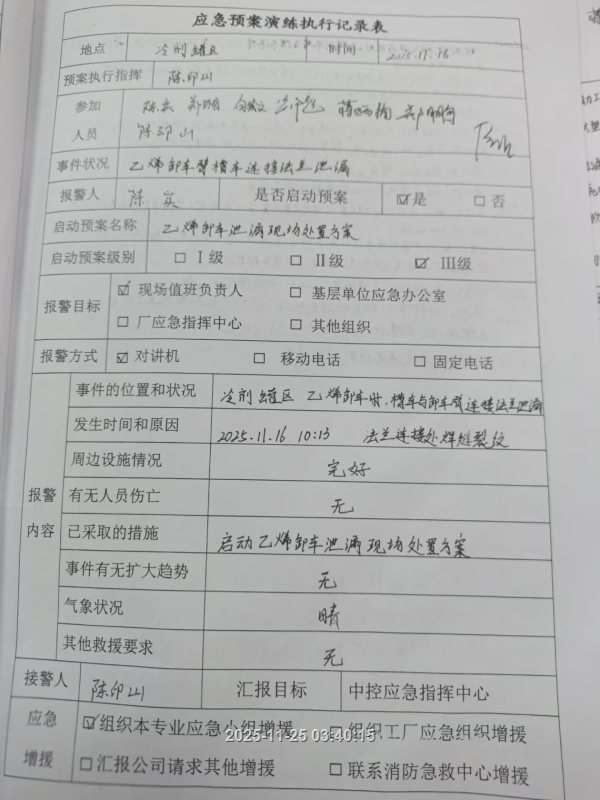 应急预案演练执行记录表
地点 冷剂罐区 时间 2025.11.16
预案执行指挥 陈印山
参加 陈兵 郑顺
人员 陈印山
事件状况 乙烯卸车臂槽车连接法兰泄漏
报警人 陈 是否启动预案 ☑是 □否
启动预案名称 乙烯卸车泄漏现场处置方案
启动预案级别 □ Ⅰ级 □ Ⅱ级 ☑ Ⅲ级
报警目标 ☑ 现场值班负责人 □ 基层单位应急办公室
□ 厂应急指挥中心 □ 其他组织
报警方式 ☑ 对讲机 □ 移动电话 □ 固定电话
报警内容
事件的位置和状况 冷剂罐区 乙烯卸车时,槽车与卸车臂连接法兰泄漏
发生时间和原因 2025.11.16 10:13 法兰连接处焊缝裂纹
周边设施情况 完好
有无人员伤亡 无
已采取的措施 启动乙烯卸车泄漏现场处置方案
事件有无扩大趋势 无
气象状况 晴
其他救援要求 无
接警人 陈印山 汇报目标 中控应急指挥中心
应急增援 ☑组织本专业应急小组增援 □组织工厂应急组织增援
□汇报公司请求其他增援 □联系消防急救中心增援
2025-11-25 03:40:15